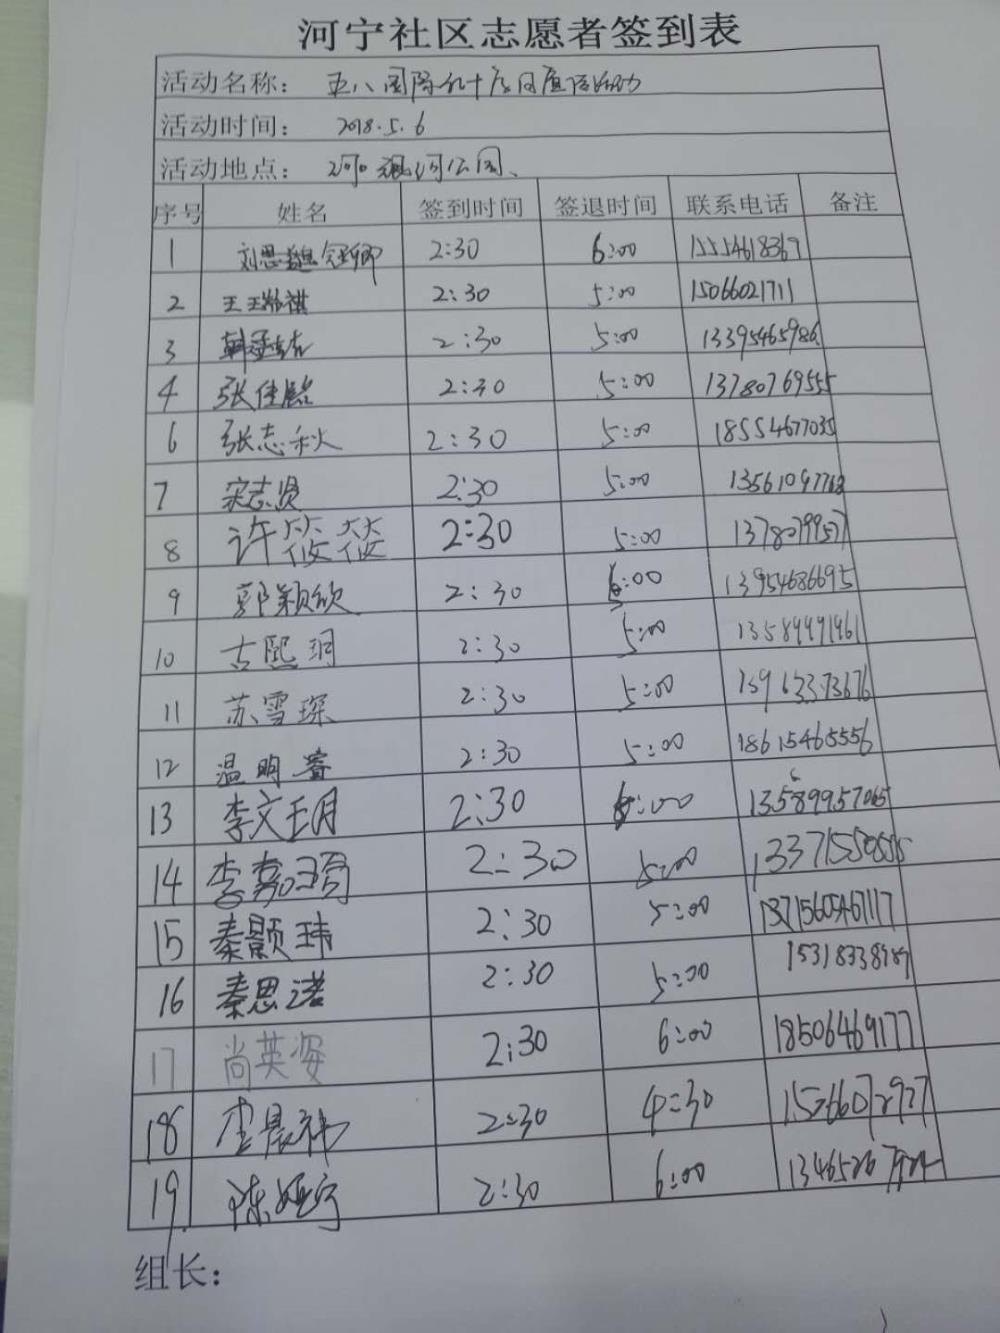 河宁社区志愿者签到表
活动名称：
活动时间： 2018.5.6
活动地点： 公园、
序号 姓名 签到时间 签退时间 联系电话 备注
1 2:30 6:00 15554618369
2 2:30 5:00 15066021711
3 2:30 5:00 13395465986
4 张佳 2:30 5:00 13780769555
6 张志秋 2:30 5:00 18554677035
7 宋志贤 2:30 5:00
8 许筱筱 2:30 5:00
9 郭颖欣 2:30 :00 13954686695
10 古熙玥 2:30 5:00 13589991961
11 苏雪琛 2:30 5:00 13963373676
12 温明睿 2:30 5:00 18615465556
13 李文玥 2:30 :00
14 李嘉 2:30 5:00
15 秦颢玮 2:30 5:00
16 秦思诺 2:30 5:00
17 尚英姿 2:30 6:00 18506469177
18 李晨祎 2:30 4:30 15266072927
19 陈 2:30 6:00
组长：